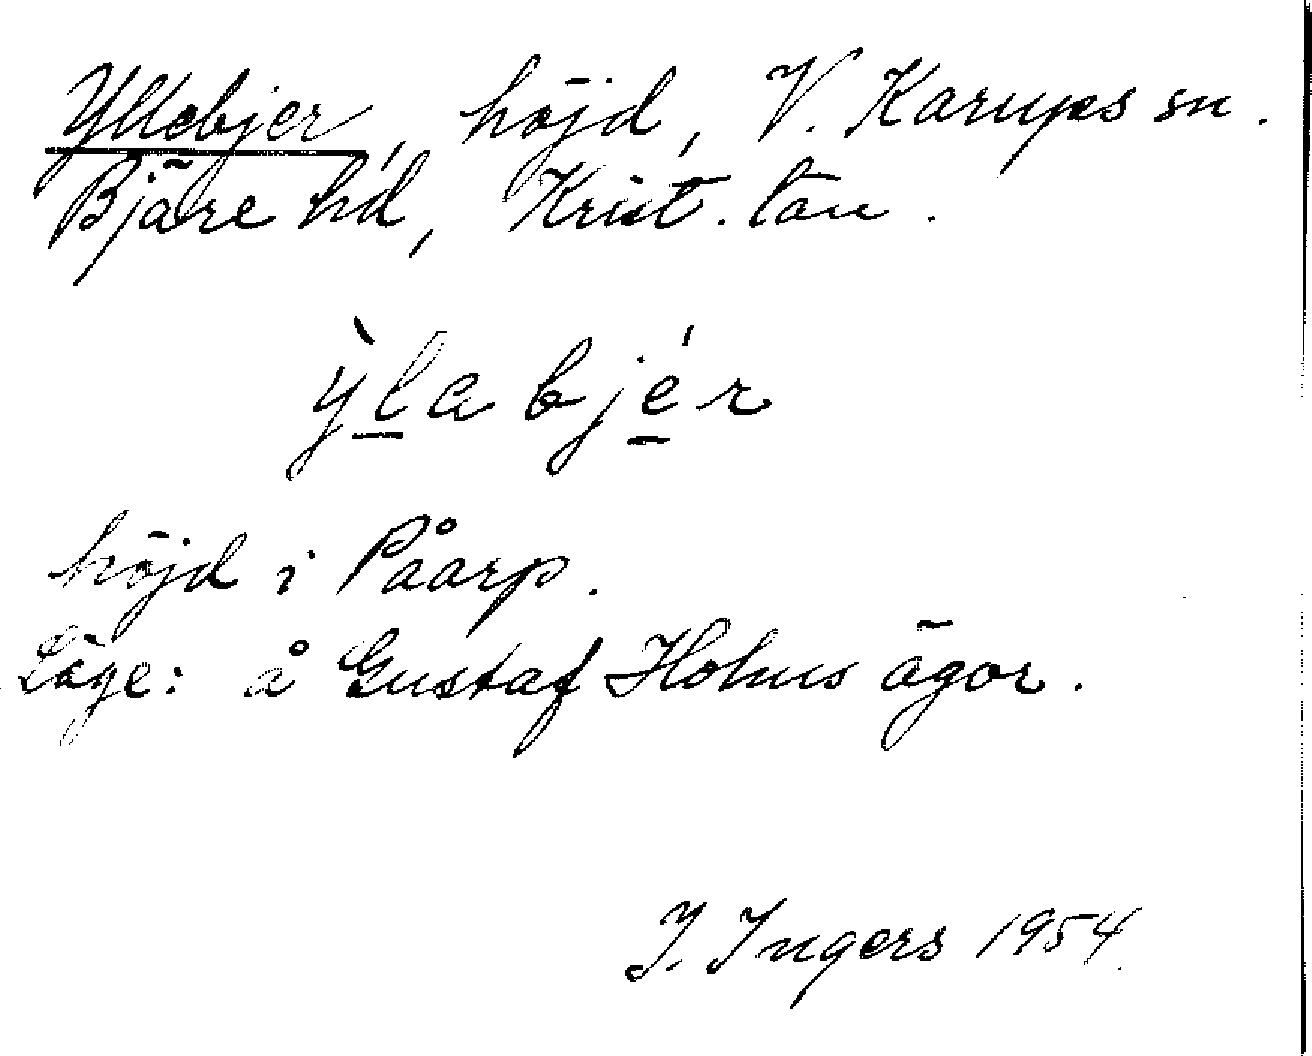 Yllebjer, höjd, V. Karups sn.
Bjäre hd, Krist. län.
ỳla bjér
höjd i Påarp.
Läge: å Gustaf Holms ägor.
I. Ingers 1954.